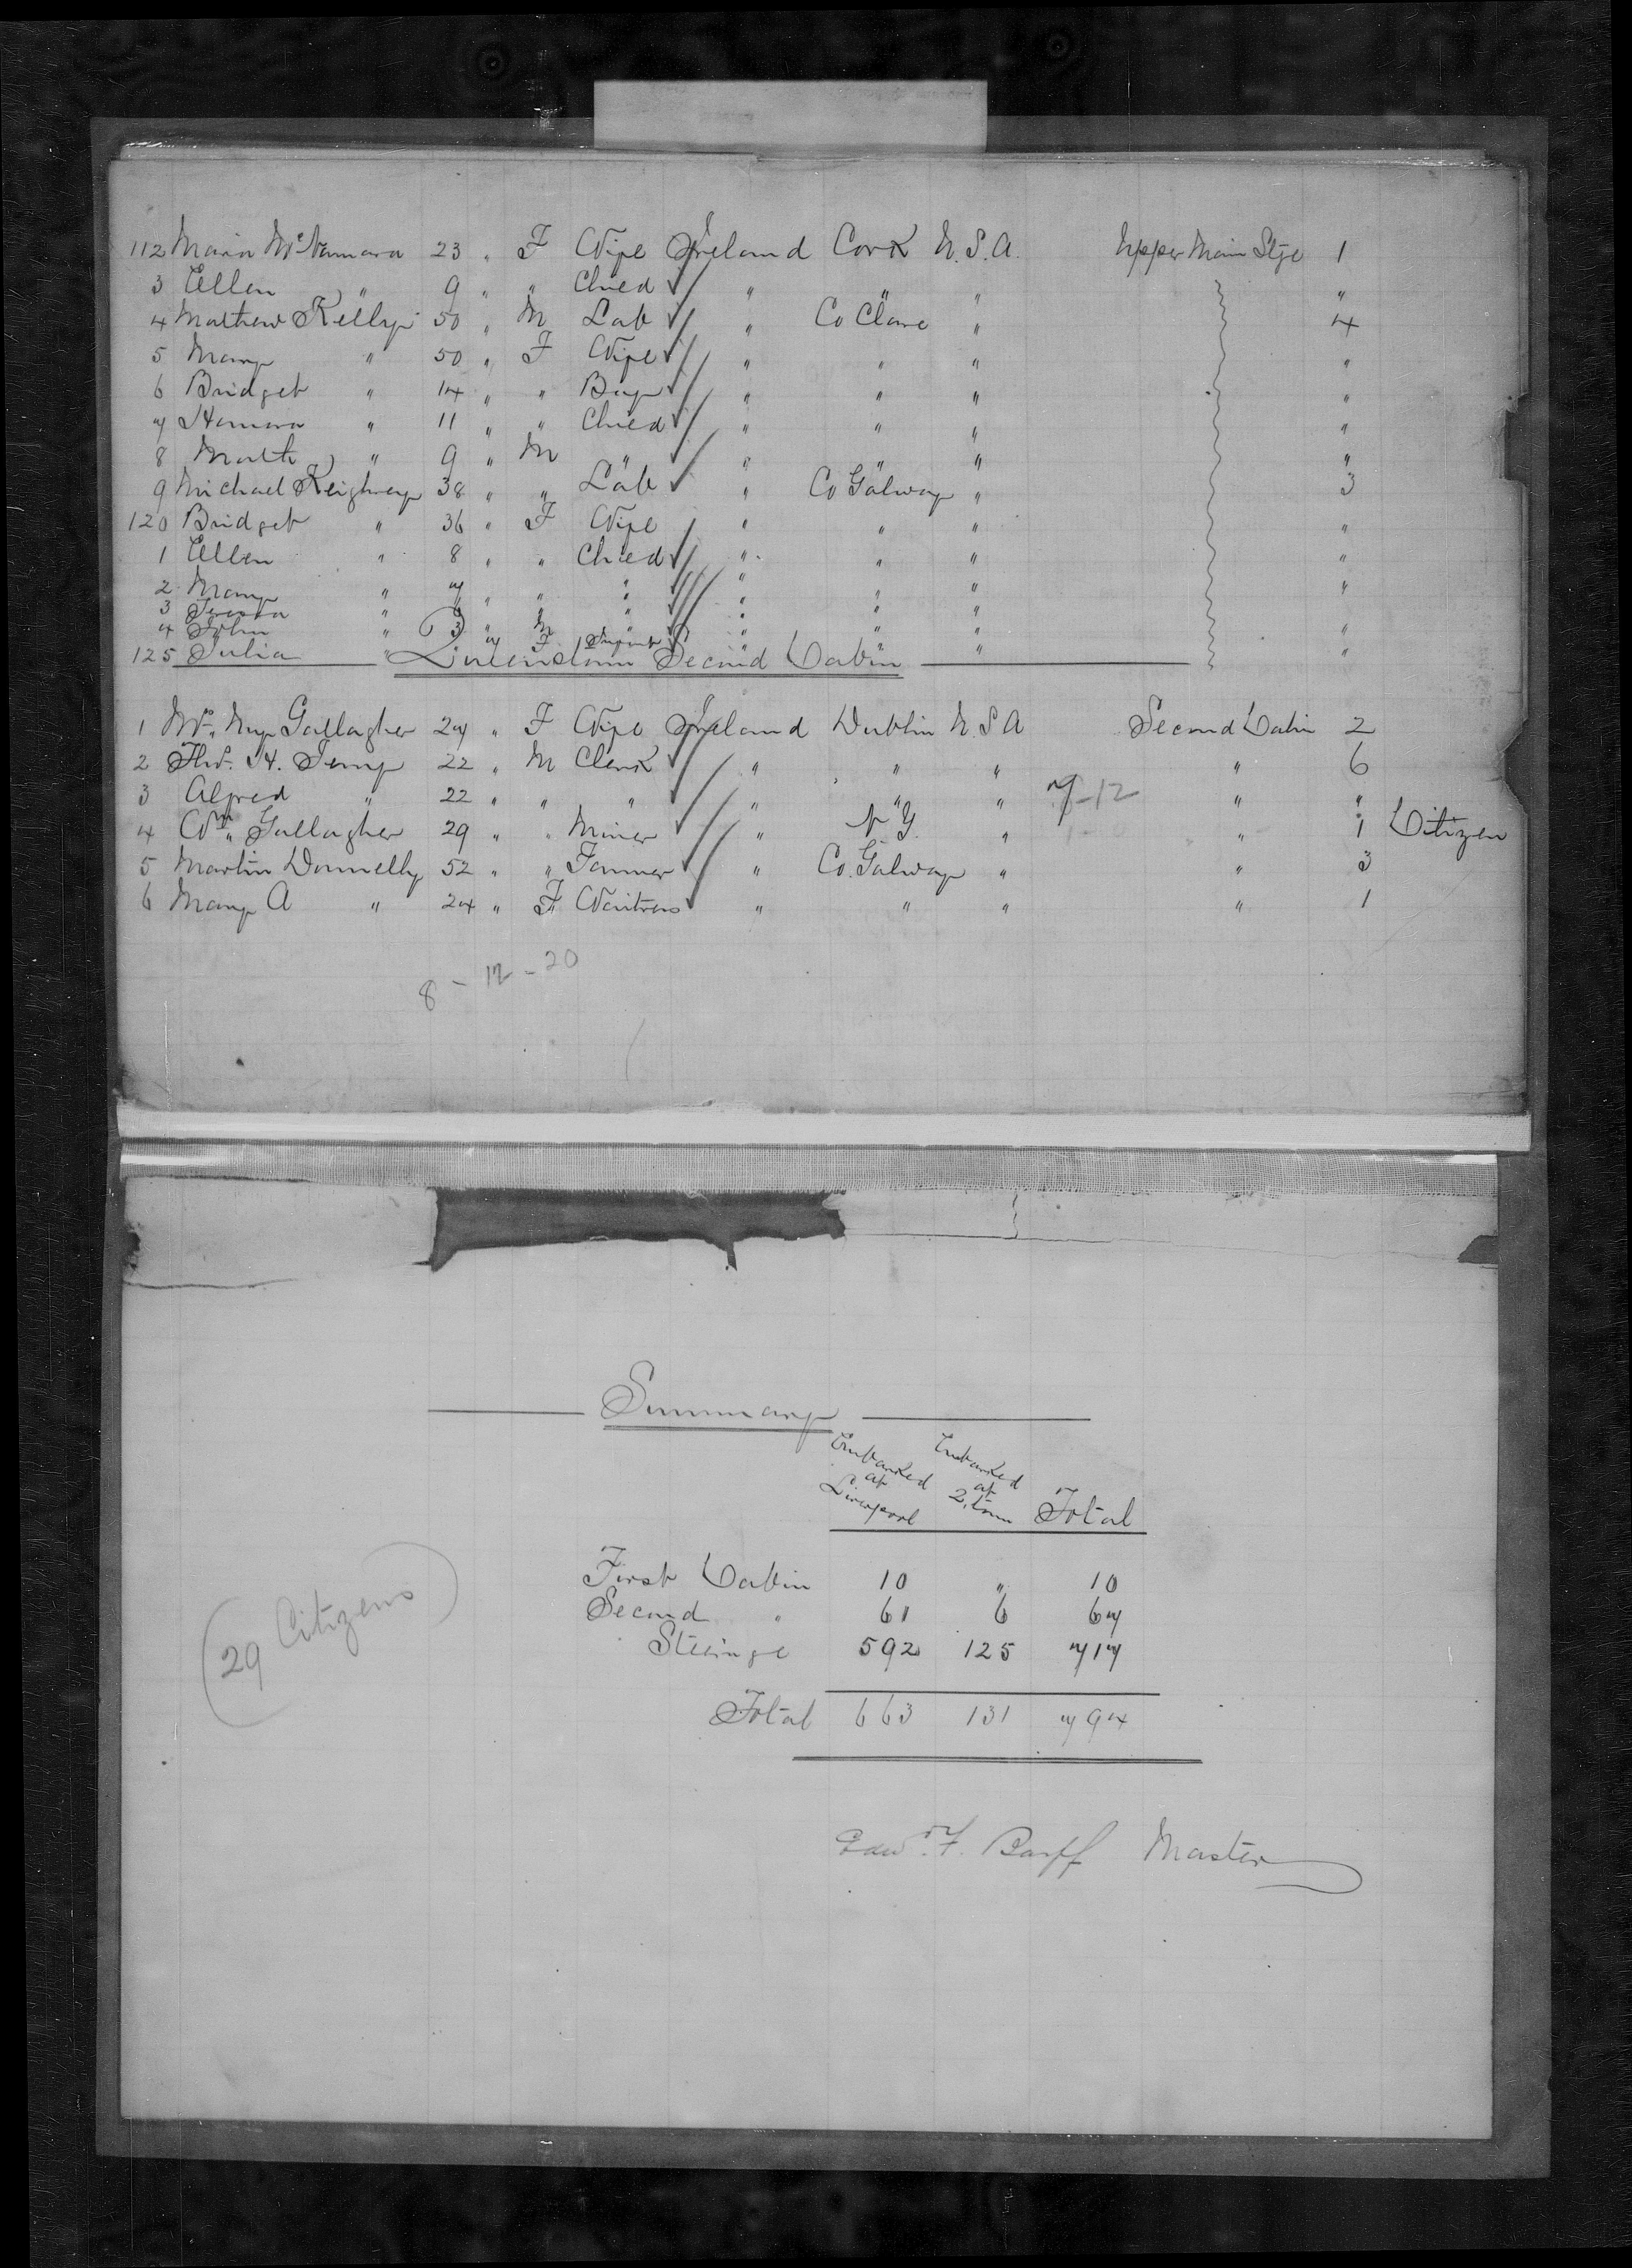 112 Maria McNamara 23 " F Wife Ireland Cork U.S.A. Upper Main Stge 1
3 Ellen " 9 " " Child " " " "
4 Mathew Kelly 50 " M Lab " Co Clare " 4
5 Mary " 50 " F Wife " " " "
6 Bridget " 14 " " " " " "
7 Honora " 11 " " Child " " " "
8 " 9 " M " " " " "
9 Michael 38 " " Lab " Co Galway " 3
120 Bridget " 36 " F Wife " " " "
1 Ellen " 8 " " Child " " " "
2 Mary " 7 " " " " " " "
3 " " " " " " "
4 John " 3 " M " " " " "
125 Julia " F Infant " " " "
Queenstown Second Cabin
1 Mrs. Gallagher 27 " F Wife Ireland Dublin U.S.A Second Cabin 2
2 H. 22 " M Clerk " " " " 6
3 Alfred " 22 " " " " " " 7-12 " "
4 Wm. Gallagher 29 " " Miner " N.Y. " " 1 Citizen
5 Martin Donnelly 52 " " Farmer " Co. Galway " " 3
6 Mary A " 24 " F Waitress " " " " 1
8 - 12 - 20
Summary
Embarked at Liverpool Embarked at Q.town Total
First Cabin 10 " 10
Second " 61 6 67
Steerage 592 125 717
Total 663 131 794
(29 Citizens)
Edwd. F. Barff Master